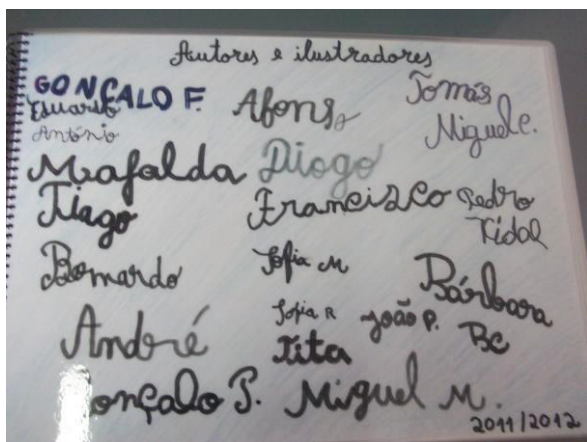 Autores e ilustradores
GONÇALO F.
Eduardo
António
Afonso
Tomás
Miguel C.
Mafalda
Diogo
Tiago
Francisco
Pedro
Vidal
Bernardo
Sofia M
Bárbara
André
Sofia R
João P.
BC
Tita
Gonçalo P.
Miguel M.
2011/2012